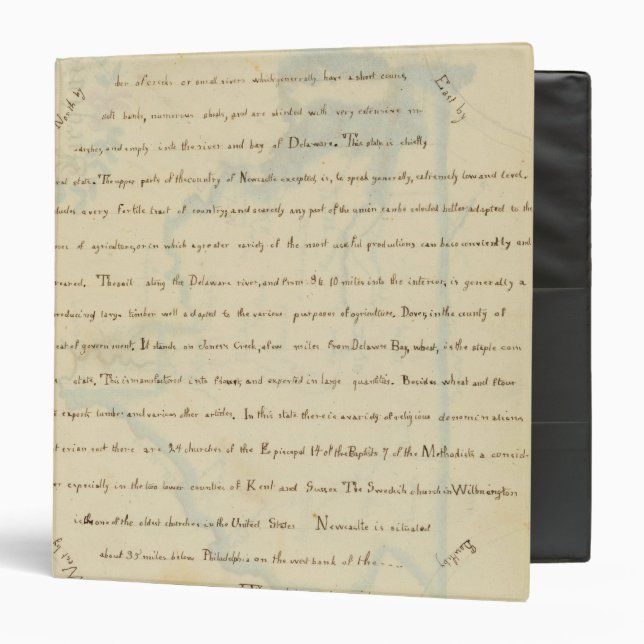 North by
East by
ber of creeks or small rivers which generally have a short course,
soft banks, numerous shoals, and are skirted with very extensive m-
arshes, and empty into the river and bay of Delaware. This state is chiefly
ral state. The upper parts of the country of Newcastle excepted, is, to speak generally, extremely low and level.
ludes a very fertile tract of country, and scarcely any part of the union can be selected better adapted to the
oses of agriculture, or in which a greater variety of the most useful productions can be so conviently and
reared. The soil along the Delaware river, and from 8 to 10 miles into the interior, is generally a
producing large timber well adapted to the various purposes of agriculture. Dover, in the county of
seat of government. It stands on Jones's Creek, a few miles from Delawre Bay, wheat, is the staple com
state. This is manufactured into flour, and exported in large quantities. Besides wheat and flour
exports lumber and various other articles. In this state there is a variety of religious denominations
terian sect there are 24 churches of the Episcopal 14 of the Baptists 7 of the Methodists a consid-
er especially in the two lower counties of Kent and Sussex The Swedish church in Wilmington
is the one of the oldest churches in the United States Newcastle is situated
about 35 miles below Philadelphia on the west bank of the ----
West by
South by